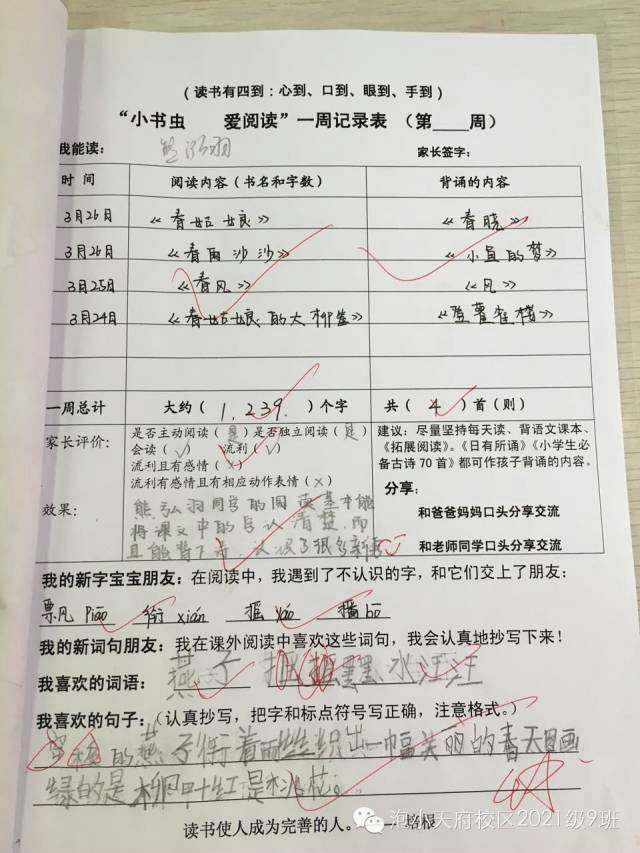 （读书有四到：心到、口到、眼到、手到）
“小书虫　爱阅读”一周记录表 （第____周）
我能读： 熊弘羽 家长签字：
时 间 阅读内容（书名和字数） 背诵的内容
3月26日 《春姑娘》 《春晓》
3月26日 《春雨沙沙》 《小鱼的梦》
3月25日 《春风》 《风》
3月24日 《春姑娘的大柳筐》 《登鹳雀楼》
一周总计 大约（ 1,239. ）个字 共（ 4 ）首（则）
家长评价： 是否主动阅读（是）是否独立阅读（是）
会读（√） 流利（√）
流利且有感情（×）
流利有感情且有相应动作表情（×）
建议：尽量坚持每天读、背语文课本、
《拓展阅读》。《日有所诵》《小学生必
备古诗70首》都可作孩子背诵的内容。
分享：
和爸爸妈妈口头分享交流
和老师同学口头分享交流
效果： 熊弘羽同学的阅读基本能
将课文中的字认清楚，而
且能背下来，认识了很多新
我的新字宝宝朋友：在阅读中，我遇到了不认识的字，和它们交上了朋友：
票风 piāo 衔 xián 摇 yáo 播 bō
我的新词句朋友：我在课外阅读中喜欢这些词句，我会认真地抄写下来！
我喜欢的词语： 燕子 水汪汪
我喜欢的句子：（认真抄写，把字和标点符号写正确，注意格式。）
的燕子衔着雨丝织出一幅美丽的春天图画
绿的是柳叶红是桃花。
读书使人成为完善的人。 —— 培根
泡小天府校区2021级9班